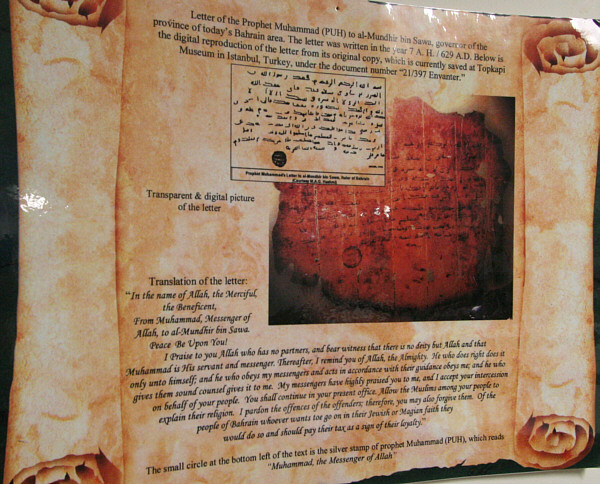 Letter of the Prophet Muhammad (PUH) to al-Mundhir bin Sawa, governor of the
province of today's Bahrain area. The letter was written in the year 7 A. H. / 629 A.D. Below is
the digital reproduction of the letter from its original copy, which is currently saved at Topkapi
Museum in Istanbul, Turkey, under the document number "21/397 Envanter."
Prophet Muhammad's Letter to al-Mundhir bin Sawa, Ruler of Bahrain
Transparent & digital picture
of the letter
Translation of the letter:
"In the name of Allah, the Merciful,
the Beneficent,
From Muhammad, Messenger of
Allah, to al-Mundhir bin Sawa.
Peace Be Upon You!
I Praise to you Allah who has no partners, and bear witness that there is no deity but Allah and that
Muhammad is His servant and messenger. Thereafter, I remind you of Allah, the Almighty. He who does right does it
only unto himself; and he who obeys my messengers and acts in accordance with their guidance obeys me; and he who
gives them sound counsel gives it to me. My messengers have highly praised you to me, and I accept your intercession
on behalf of your people. You shall continue in your present office. Allow the Muslims among your people to
explain their religion. I pardon the offences of the offenders; therefore, you may also forgive them. Of the
people of Bahrain whoever wants toe go on in their Jewish or Magian faith they
would do so and should pay their tax as a sign of their loyalty."
The small circle at the bottom left of the text is the silver stamp of prophet Muhammad (PUH), which reads
"Muhammad, the Messenger of Allah"